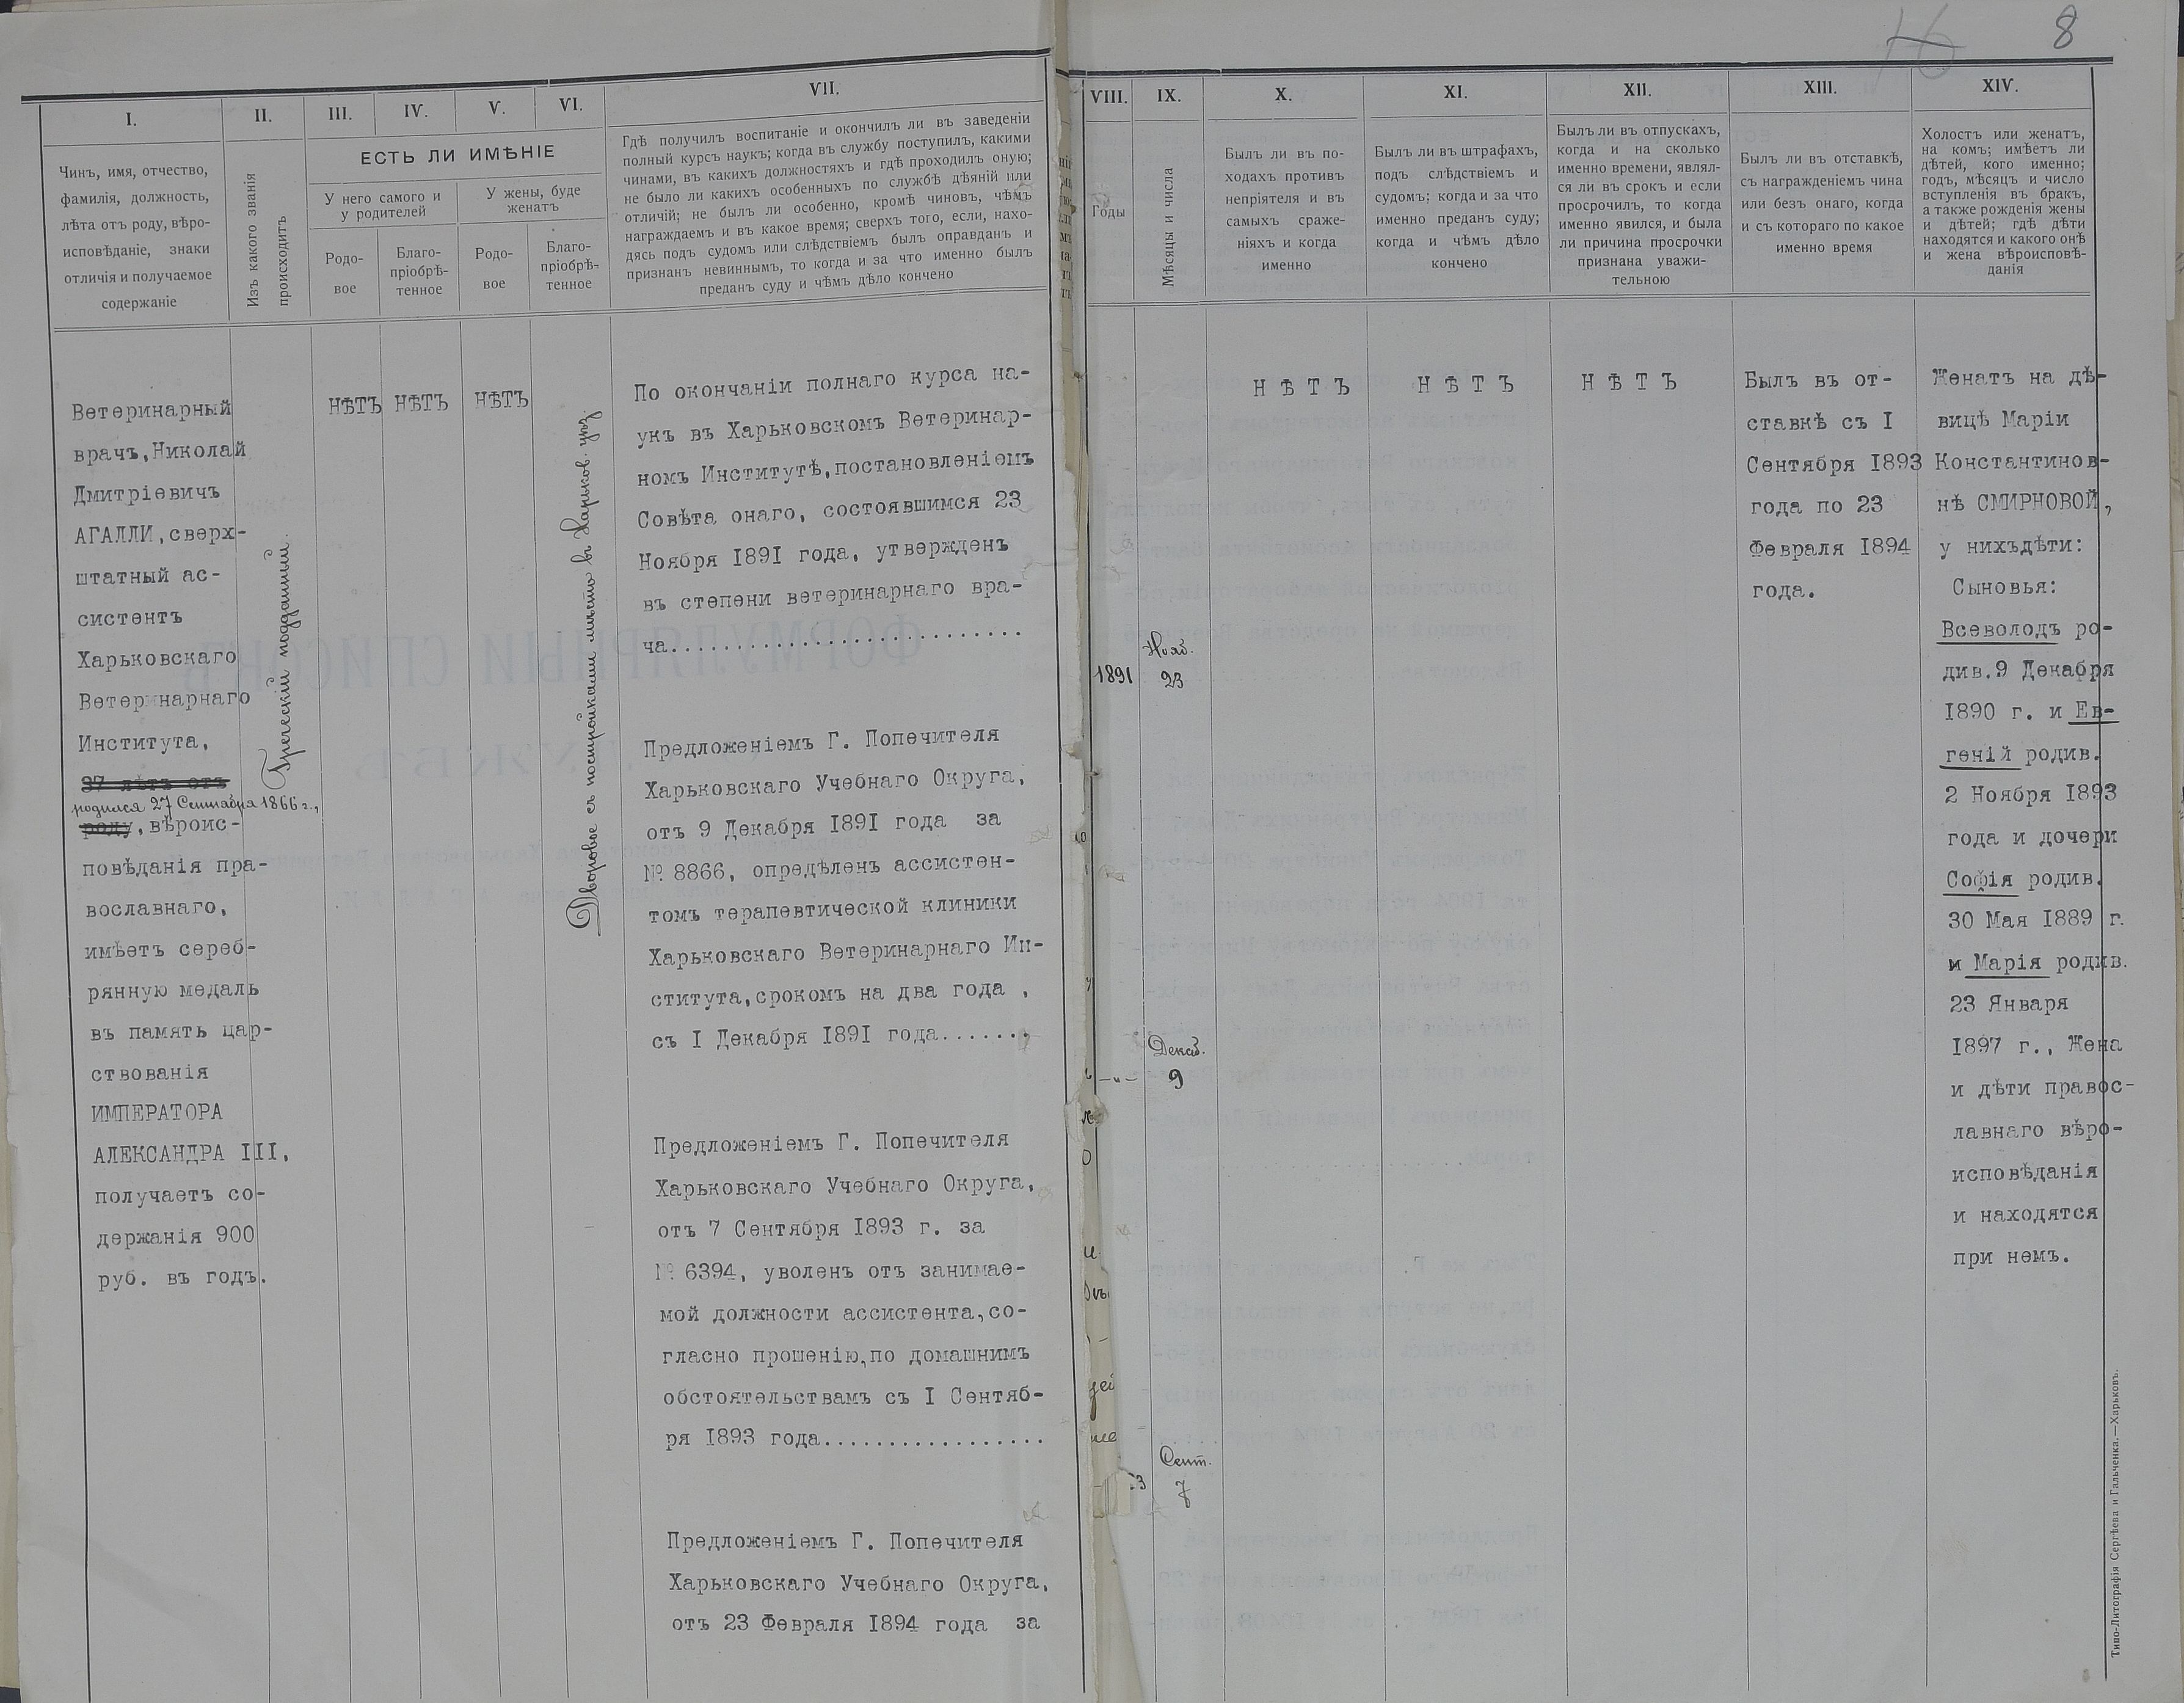 16 8
I.
Чинъ, имя, отчество,
фамилія, должность,
лѣта отъ роду, вѣро-
исповѣданіе, знаки
отличія и получаемое
содержаніе
Ветеринарный
врачъ,Николай
Дмитріевичъ
АГАЛЛИ,сверх-
штатный ас-
систентъ
Харьковскаго
Ветеринарнаго
Института,
37 лѣтъ отъ
родился 27 Сентября 1866 г.,
роду,вѣроис-
повѣданія пра-
вославнаго,
имѣетъ сереб-
рянную медаль
въ память цар-
ствованія
ИМПЕРАТОРА
АЛЕКСАНДРА III,
получаетъ со-
держанія 900
руб. въ годъ.
II.
Изъ какого званія
происходитъ
Греческій подданный.
III. IV. V. VI.
ЕСТЬ ЛИ ИМѢНІЕ
У него самого и
у родителей
У жены, буде
женатъ
Родо-
вое
Благо-
пріобрѣ-
тенное
Родо-
вое
Благо-
пріобрѣ-
тенное
НѢТЪ НѢТЪ НѢТЪ
Дворовое съ постройками мѣсто въ Харьков. уѣз.
VII.
Гдѣ получилъ воспитаніе и окончилъ ли въ заведеніи
полный курсъ наукъ; когда въ службу поступилъ, какими
чинами, въ какихъ должностяхъ и гдѣ проходилъ оную;
не было ли какихъ особенныхъ по службѣ дѣяній или
отличій; не былъ ли особенно, кромѣ чиновъ, чѣмъ
награждаемъ и въ какое время; сверхъ того, если, нахо-
дясь подъ судомъ или слѣдствіемъ былъ оправданъ и
признанъ невиннымъ, то когда и за что именно былъ
преданъ суду и чѣмъ дѣло кончено
По окончаніи полнаго курса на-
укъ въ Харьковскомъ Ветеринар-
номъ Институтѣ,постановленіемъ
Совѣта онаго, состоявшимся 23
Ноября 1891 года, утвержденъ
въ степени ветеринарнаго вра-
ча...........................
Предложеніемъ Г. Попечителя
Харьковскаго Учебнаго Округа,
отъ 9 Декабря 1891 года за
№ 8866, опредѣленъ ассистен-
томъ терапевтической клиники
Харьковскаго Ветеринарнаго Ин-
ститута,срокомъ на два года ,
съ I Декабря 1891 года.......
Предложеніемъ Г. Попечителя
Харьковскаго Учебнаго Округа,
отъ 7 Сентября 1893 г. за
№ 6394, уволенъ отъ занимае-
мой должности ассистента,со-
гласно прошенію,по домашнимъ
обстоятельствамъ съ I Сентяб-
ря 1893 года.................
Предложеніемъ Г. Попечителя
Харьковскаго Учебнаго Округа,
отъ 23 Февраля 1894 года за
VIII.
Годы
1891
—„—
3
IX.
Мѣсяцы и числа
Нояб.
23
Декаб.
9
Сент.
7
X.
Былъ ли въ по-
ходахъ противъ
непріятеля и въ
самыхъ сраже-
ніяхъ и когда
именно
НѢТЪ
XI.
Былъ ли въ штрафахъ,
подъ слѣдствіемъ и
судомъ; когда и за что
именно преданъ суду;
когда и чѣмъ дѣло
кончено
НѢТЪ
XII.
Былъ ли въ отпускахъ,
когда и на сколько
именно времени, являл-
ся ли въ срокъ и если
просрочилъ, то когда
именно явился, и была
ли причина просрочки
признана уважи-
тельною
НѢТЪ
XIII.
Былъ ли въ отставкѣ,
съ награжденіемъ чина
или безъ онаго, когда
и съ котораго по какое
именно время
Былъ въ от-
ставкѣ съ I
Сентября 1893
года по 23
Февраля 1894
года.
XIV.
Холостъ или женатъ,
на комъ; имѣетъ ли
дѣтей, кого именно;
годъ, мѣсяцъ и число
вступленія въ бракъ,
а также рожденія жены
и дѣтей; гдѣ дѣти
находятся и какого онѣ
и жена вѣроисповѣ-
данія
Женатъ на дѣ-
вицѣ Маріи
Константинов-
нѣ СМИРНОВОЙ,
у нихъдѣти:
Сыновья:
Всеволодъ ро-
див.9 Декабря
1890 г. и Ев-
геній родив.
2 Ноября 1893
года и дочери
Софія родив.
30 Мая 1889 г.
и Марія родив.
23 Января
1897 г., Жена
и дѣти правос-
лавнаго вѣро-
исповѣданія
и находятся
при немъ.
Типо-Литографія Сергѣева и Гальченка.—Харьковъ.